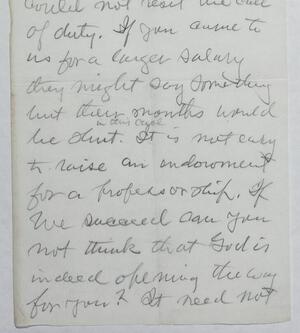 could not resist the call
of duty. If you came to
us for a larger salary
they might say something
but their mouths would
in this case
be shut. It is not easy
to raise an endowment
for a professorship. If
We succeed can you
not think that God is
indeed opening the way
for you? It need not